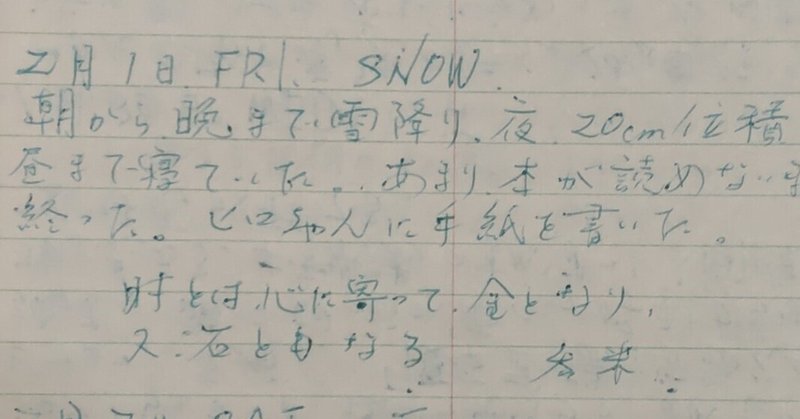 2月1日 FRI. SNOW.
朝から晩まで雪降り、夜 20cm位積
昼まで寝ていた。あまり本が読めない
終った。ヒロちゃんに手紙を書いた。
時とは心に寄って金となり、
又石ともなる